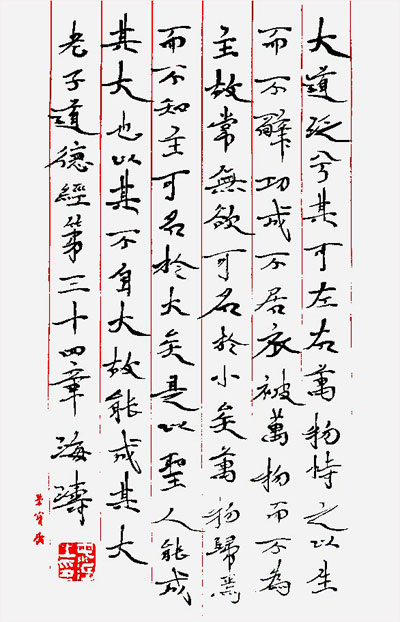 大道泛兮其可左右萬物恃之以生
而不辭功成不居衣被萬物而不為
主故常無欲可名於小矣萬物歸焉
而不知主可名於大矣是以聖人能成
其大也以其不自大故能成其大
老子道德經第三十四章 海濤
榮寶齋